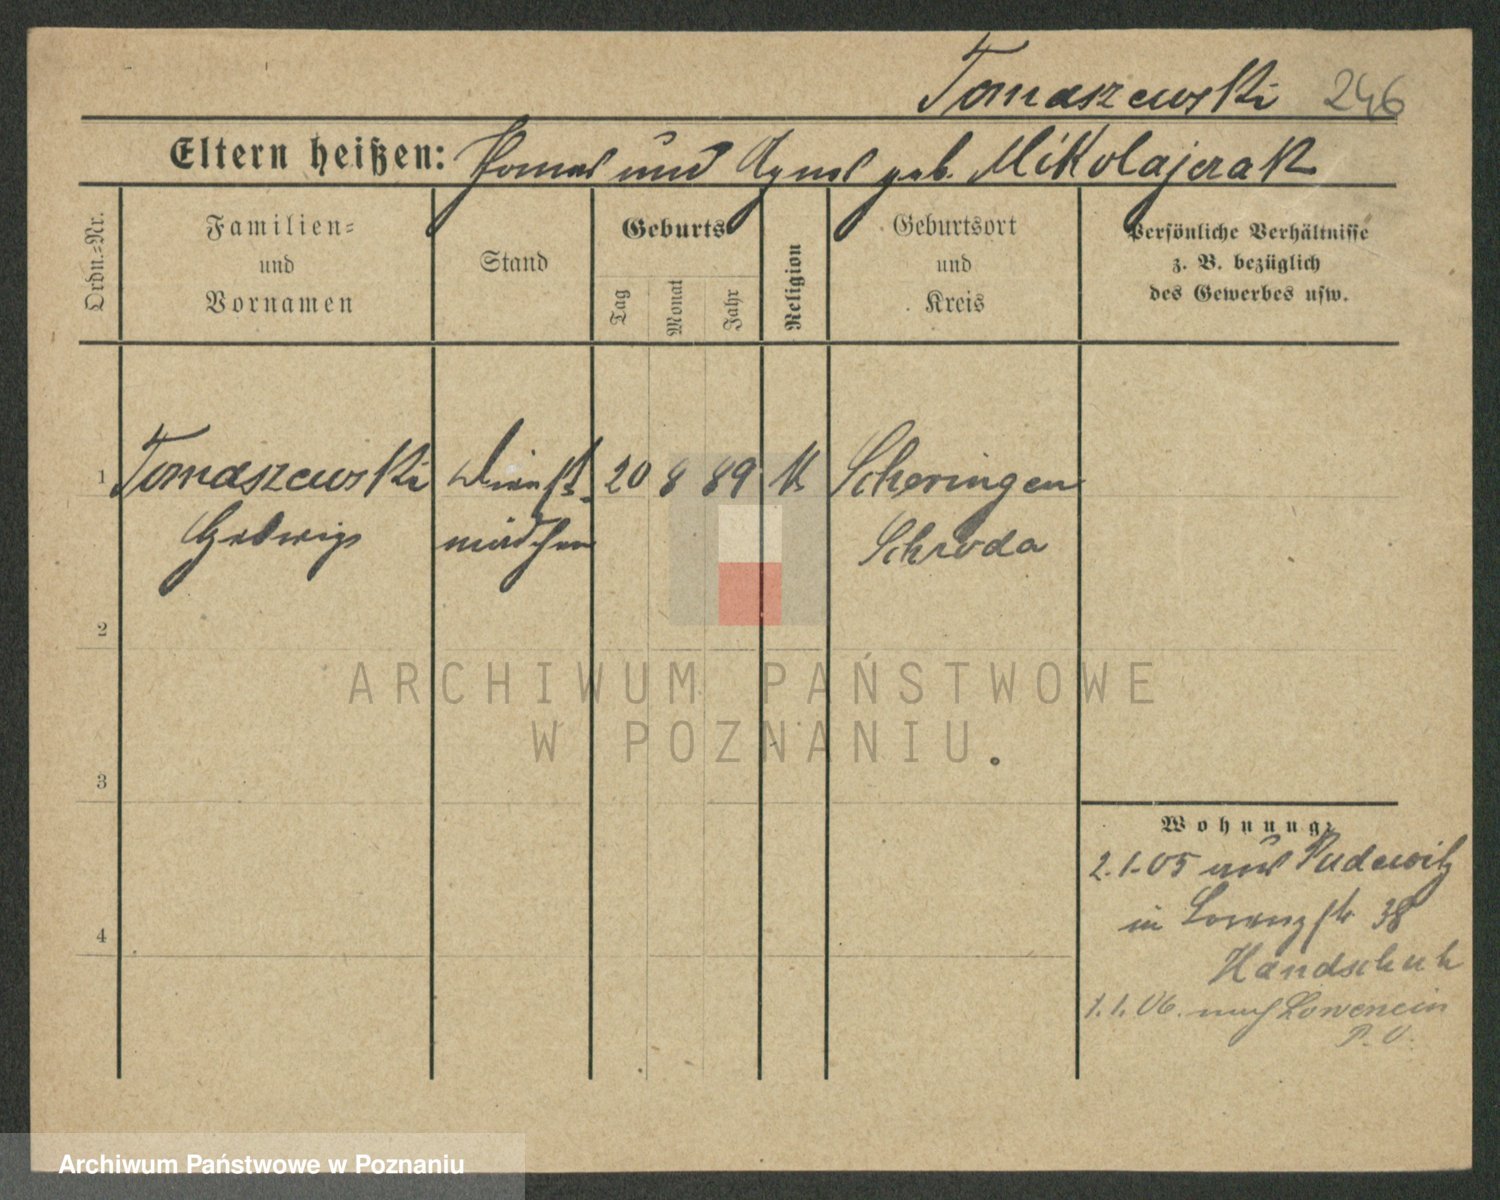 Tomaszewski 246
Eltern heißen: Thomas und Agnes geb. Mikolajczak
Ordn.=Nr.
Familien=
und
Vornamen
Stand
Geburts
Tag
Monat
Jahr
Religion
Geburtsort
und
Kreis
Persönliche Verhältnisse
z. B. bezüglich
des Gewerbes usw.
1 Tomaszewski Dienst- 20 8 89 K Scheringen
Hedwig mädchen Schroda
2
3
4
Wohnung:
2.1.05 aus Pudewitz
in Lorenzstr 38
Handschuh
1.1.06. nach Lowencin
P. O.
ARCHIWUM PAŃSTWOWE
W POZNANIU
Archiwum Państwowe w Poznaniu